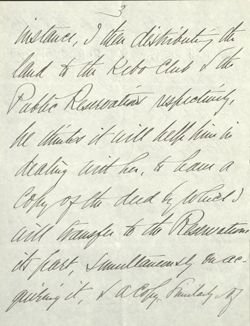 3
instance, I then distributing the
land to the Kebo Club & the
Public Reservations respectively,
he thinks it will help him in
dealing with her, to have a
copy of the deed by which I
will transfer to the Reservations
its part, simultaneously on ac-
quiring it, & a copy similarly of